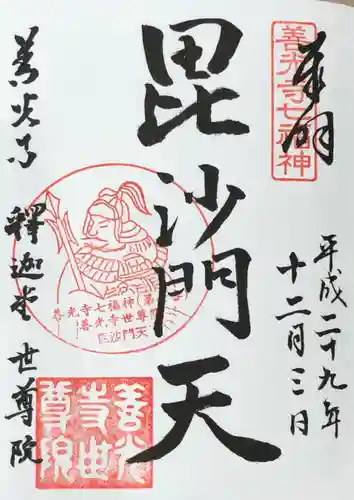 奉拝
善光寺七福神
平成二十九年
十二月三日
毘沙門天
善光寺七福神
善光寺世尊院
毘沙門天
善光寺 釋迦堂 世尊院
善光
寺世
尊院